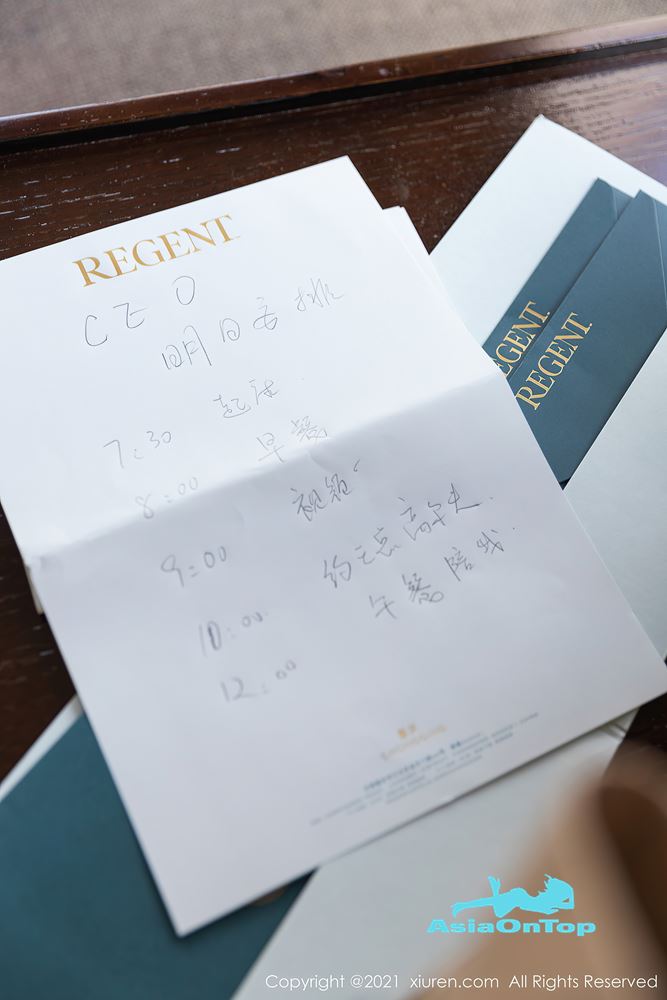 REGENT
CEO
明日安排
7:30 起床
8:00 早餐
9:00 视频
10:00 约王总高尔夫
12:00 午餐陪我
REGENT
REGENT
AsiaOnTop
Copyright @2021 xiuren.com All Rights Reserved